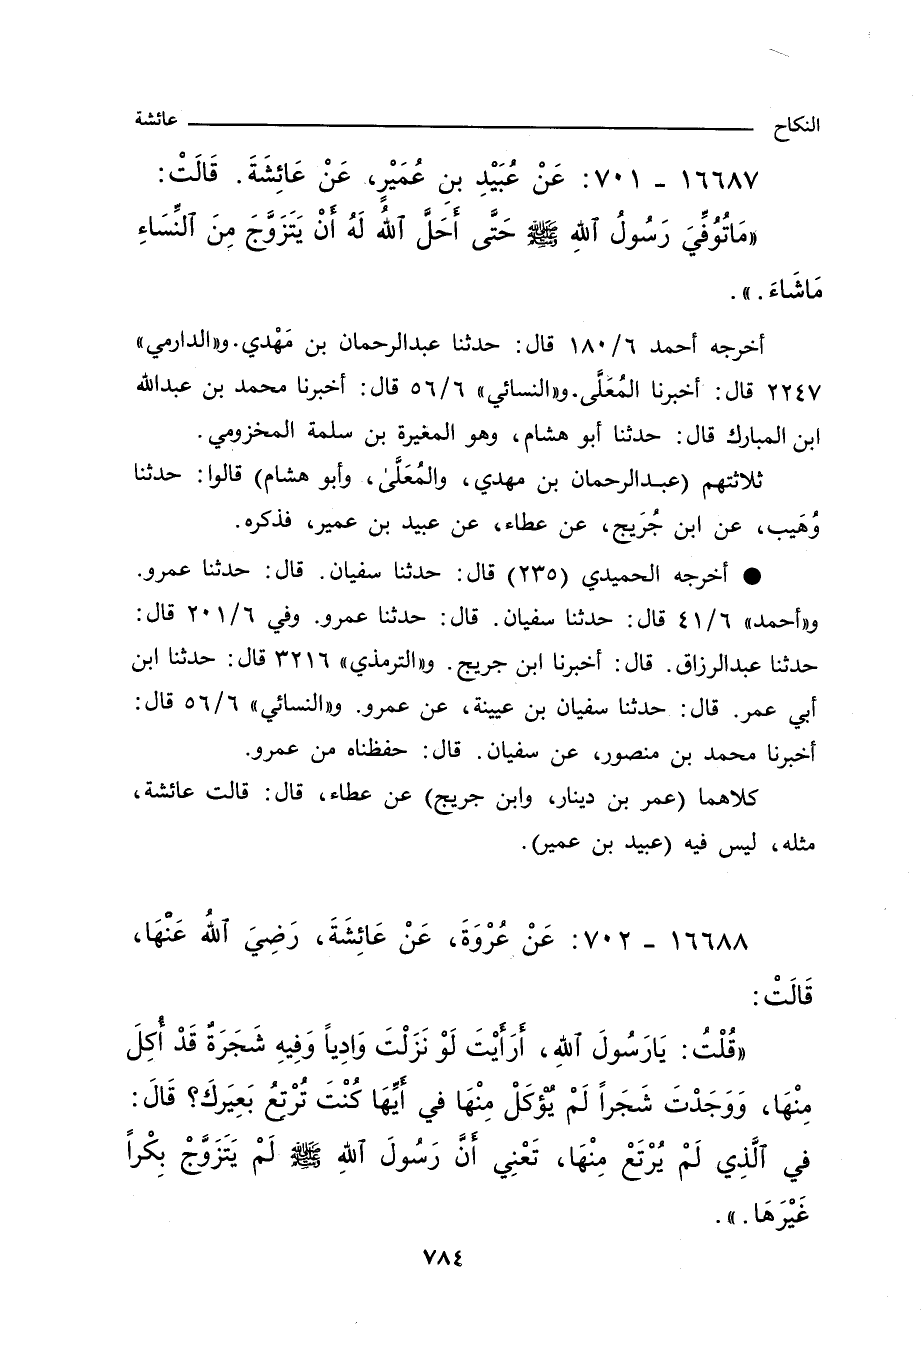 النكاح عائشة
١٦٦٨٧ - ٧٠١: عَنْ عُبَيْدِ بنِ عُمَيْرٍ، عَنْ عَائِشَةَ. قَالَتْ:
«مَاتُوُفِّيَ رَسُولُ ٱللهِ ﷺ حَتَّى أَحَلَّ ٱللهُ لَهُ أَنْ يَتَزَوَّجَ مِنَ ٱلنِّسَاءِ
مَاشَاءَ.».
أخرجه أحمد ١٨٠/٦ قال: حدثنا عبدالرحمان بن مَهْدي. و«الدارمي»
٢٢٤٧ قال: أخبرنا المُعَلَّى. و«النسائي» ٥٦/٦ قال: أخبرنا محمد بن عبدالله
ابن المبارك قال: حدثنا أبو هشام، وهو المغيرة بن سلمة المخزومي.
ثلاثتهم (عبدالرحمان بن مهدي، والمُعَلَّىٰ، وأبو هشام) قالوا: حدثنا
وُهَيب، عن ابن جُرَيج، عن عطاء، عن عبيد بن عمير، فذكره.
● أخرجه الحميدي (٢٣٥) قال: حدثنا سفيان. قال: حدثنا عمرو.
و«أحمد» ٤١/٦ قال: حدثنا سفيان. قال: حدثنا عمرو. وفي ٢٠١/٦ قال:
حدثنا عبدالرزاق. قال: أخبرنا ابن جريج. و«الترمذي» ٣٢١٦ قال: حدثنا ابن
أبي عمر. قال: حدثنا سفيان بن عيينة، عن عمرو. و«النسائي» ٥٦/٦ قال:
أخبرنا محمد بن منصور، عن سفيان. قال: حفظناه من عمرو.
كلاهما (عمر بن دينار، وابن جريج) عن عطاء، قال: قالت عائشة،
مثله، ليس فيه (عبيد بن عمير).
١٦٦٨٨ - ٧٠٢: عَنْ عُرْوَةَ، عَنْ عَائِشَةَ، رَضِيَ ٱللهُ عَنْهَا،
قَالَتْ:
«قُلْتُ: يَارَسُولَ ٱللهِ، أَرَأَيْتَ لَوْ نَزَلْتَ وَادِياً وَفِيهِ شَجَرَةٌ قَدْ أُكِلَ
مِنْهَا، وَوَجَدْتَ شَجَراً لَمْ يُؤْكَلْ مِنْهَا في أَيِّهَا كُنْتَ تُرْتِعُ بَعِيَرَكَ؟ قَالَ:
في ٱلَّذِي لَمْ يُرْتَعْ مِنْهَا، تَعْنِي أَنَّ رَسُولَ ٱللهِ ﷺ لَمْ يَتَزَوَّجْ بِكْراً
غَيْرَهَا.».
٧٨٤